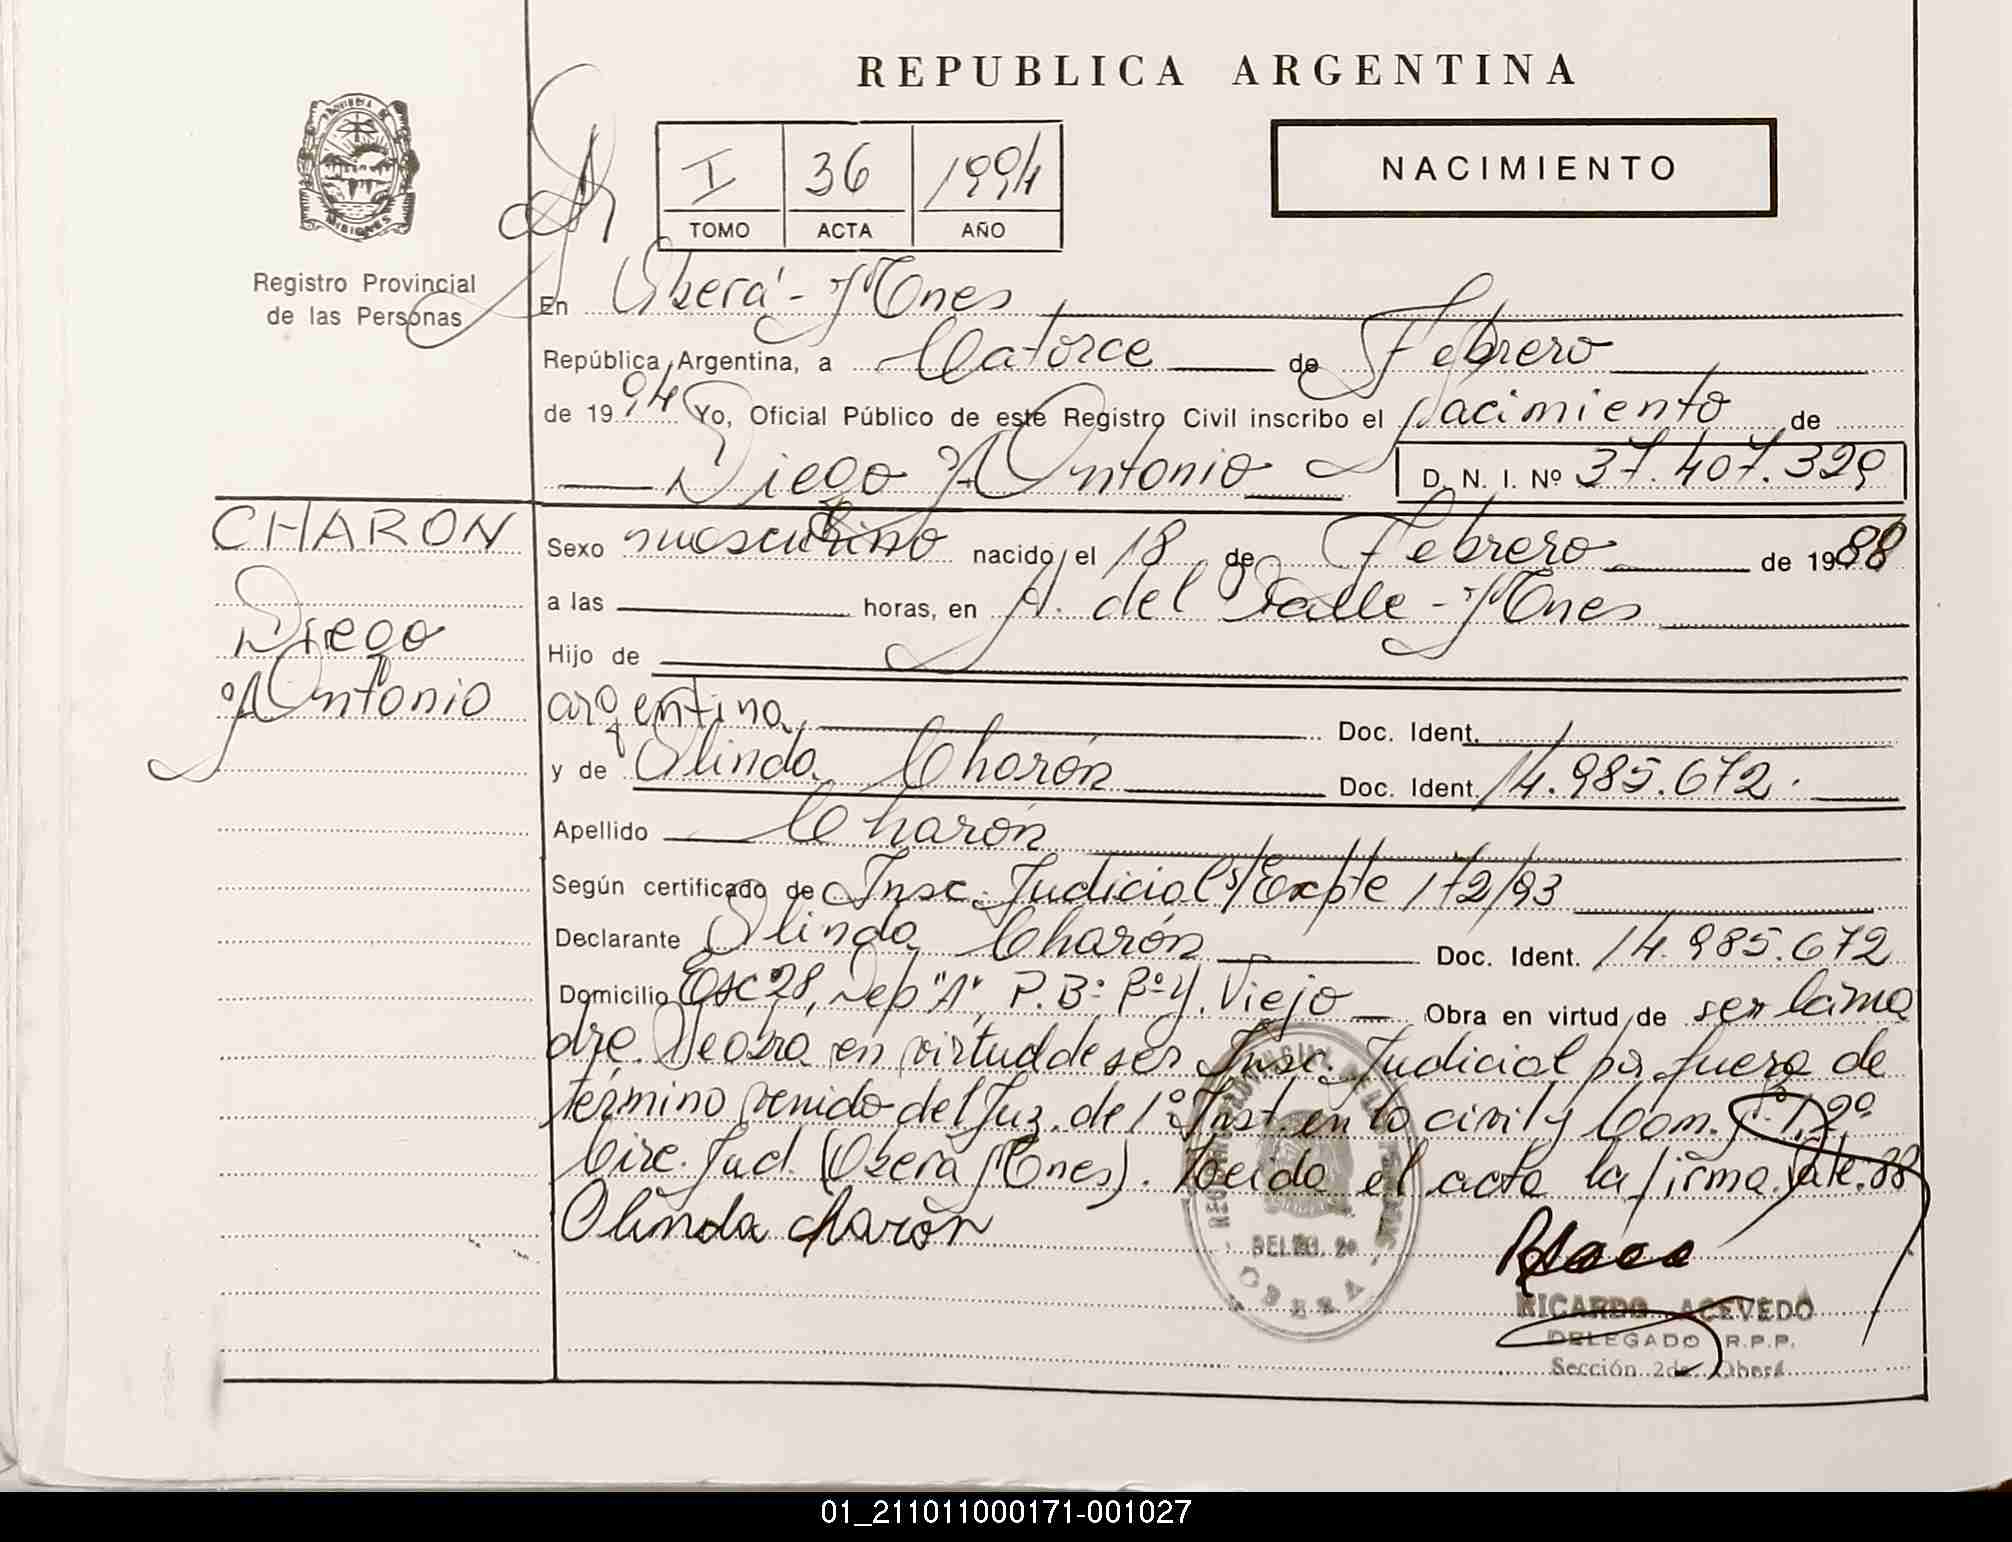 REPUBLICA ARGENTINA
NACIMIENTO
I 36 1994
TOMO ACTA AÑO
PROVINCIA DE
MISIONES
Registro Provincial
de las Personas
En Oberá - Mnes
República Argentina, a Catorce de Febrero
de 1994 Yo, Oficial Público de este Registro Civil inscribo el nacimiento de
Diego Antonio D. N. I. Nº 37.407.329
CHARON
Diego
Antonio
Sexo masculino nacido el 18 de Febrero de 1988
a las horas, en A. del Valle - Mnes
Hijo de
argentina Doc. Ident.
y de Olinda Charón Doc. Ident. 14.985.672.
Apellido Charón
Según certificado de Insc. Judicial s/Expte 172/93
Declarante Olinda Charón Doc. Ident. 14.985.672
Domicilio Esc 28, Dep "A", P.B: Bº Y. Viejo Obra en virtud de ser la ma
dre. Se obra en virtud de ser Insc. Judicial por fuera de
término venido del Juz. de 1º Inst. en lo civil y Com. Nº 1, 2º
Circ. Jud. (Oberá Mnes). Leida el acta la firma. Vale: 88
Olinda charón
OBERA
RICARDO ACEVEDO
DELEGADO R.P.P.
Sección 2da. Oberá
01_211011000171-001027